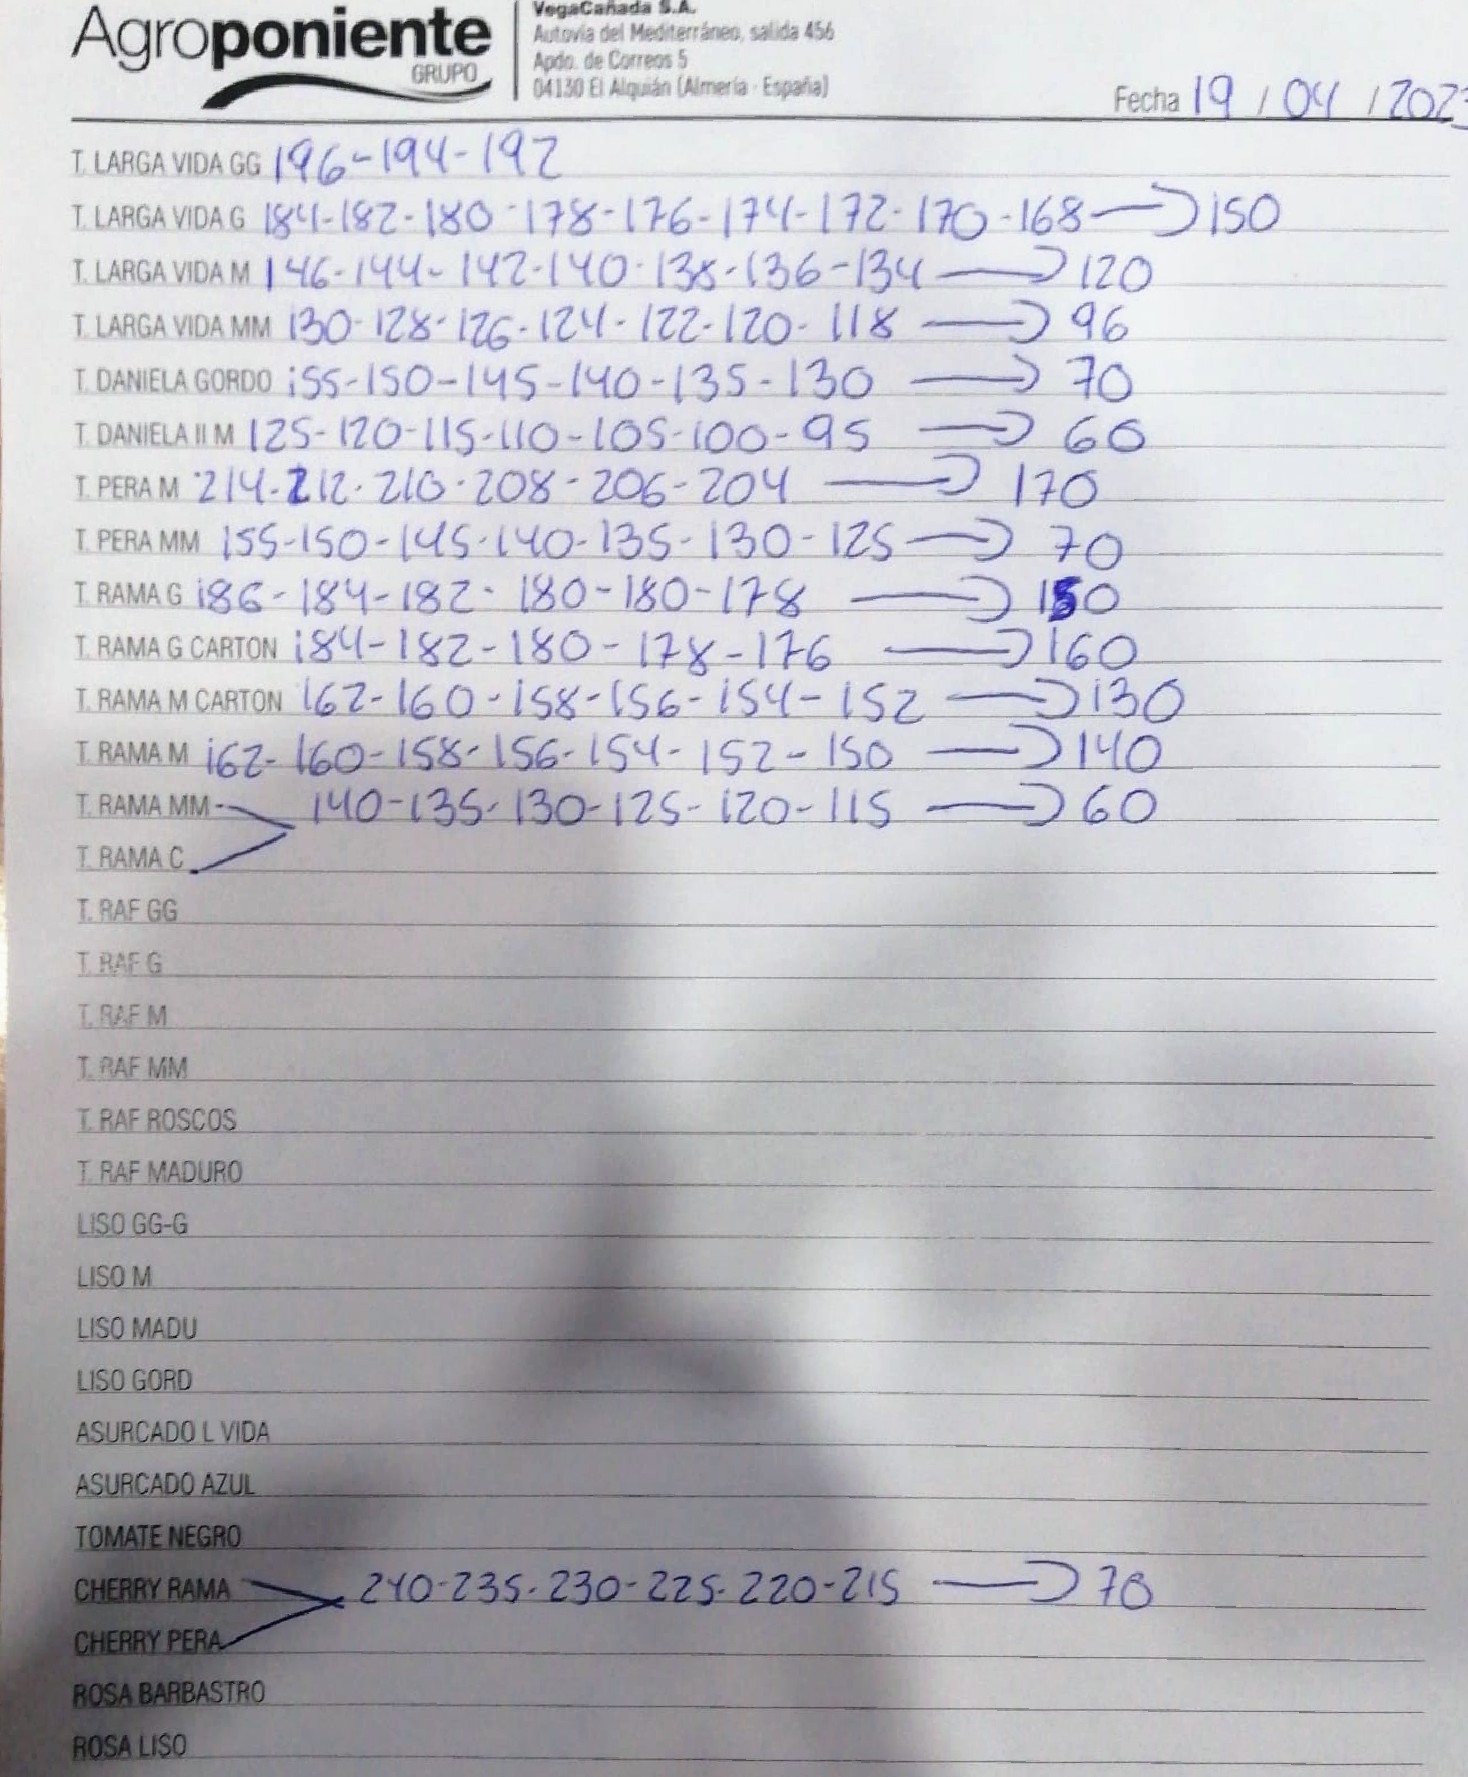 Agroponiente
GRUPO
VegaCañada S.A.
Autovía del Mediterráneo, salida 456
Apdo. de Correos 5
04130 El Alquián (Almería - España)
Fecha 19 / 04 / 2023
T. LARGA VIDA GG 196-194-192
T. LARGA VIDA G 184-182-180-178-176-174-172-170-168 → 150
T. LARGA VIDA M 146-144-142-140-138-136-134 → 120
T. LARGA VIDA MM 130-128-126-124-122-120-118 → 96
T. DANIELA GORDO 155-150-145-140-135-130 → 70
T. DANIELA II M 125-120-115-110-105-100-95 → 60
T. PERA M 214-212-210-208-206-204 → 170
T. PERA MM 155-150-145-140-135-130-125 → 70
T. RAMA G 186-184-182-180-180-178 → 150
T. RAMA G CARTON 184-182-180-178-176 → 160
T. RAMA M CARTON 162-160-158-156-154-152 → 130
T. RAMA M 162-160-158-156-154-152-150 → 140
T. RAMA MM 140-135-130-125-120-115 → 60
T. RAMA C
T. RAF GG
T. RAF G
T. RAF M
T. RAF MM
T. RAF ROSCOS
T. RAF MADURO
LISO GG-G
LISO M
LISO MADU
LISO GORD
ASURCADO L VIDA
ASURCADO AZUL
TOMATE NEGRO
CHERRY RAMA 240-235-230-225-220-215 → 70
CHERRY PERA
ROSA BARBASTRO
ROSA LISO